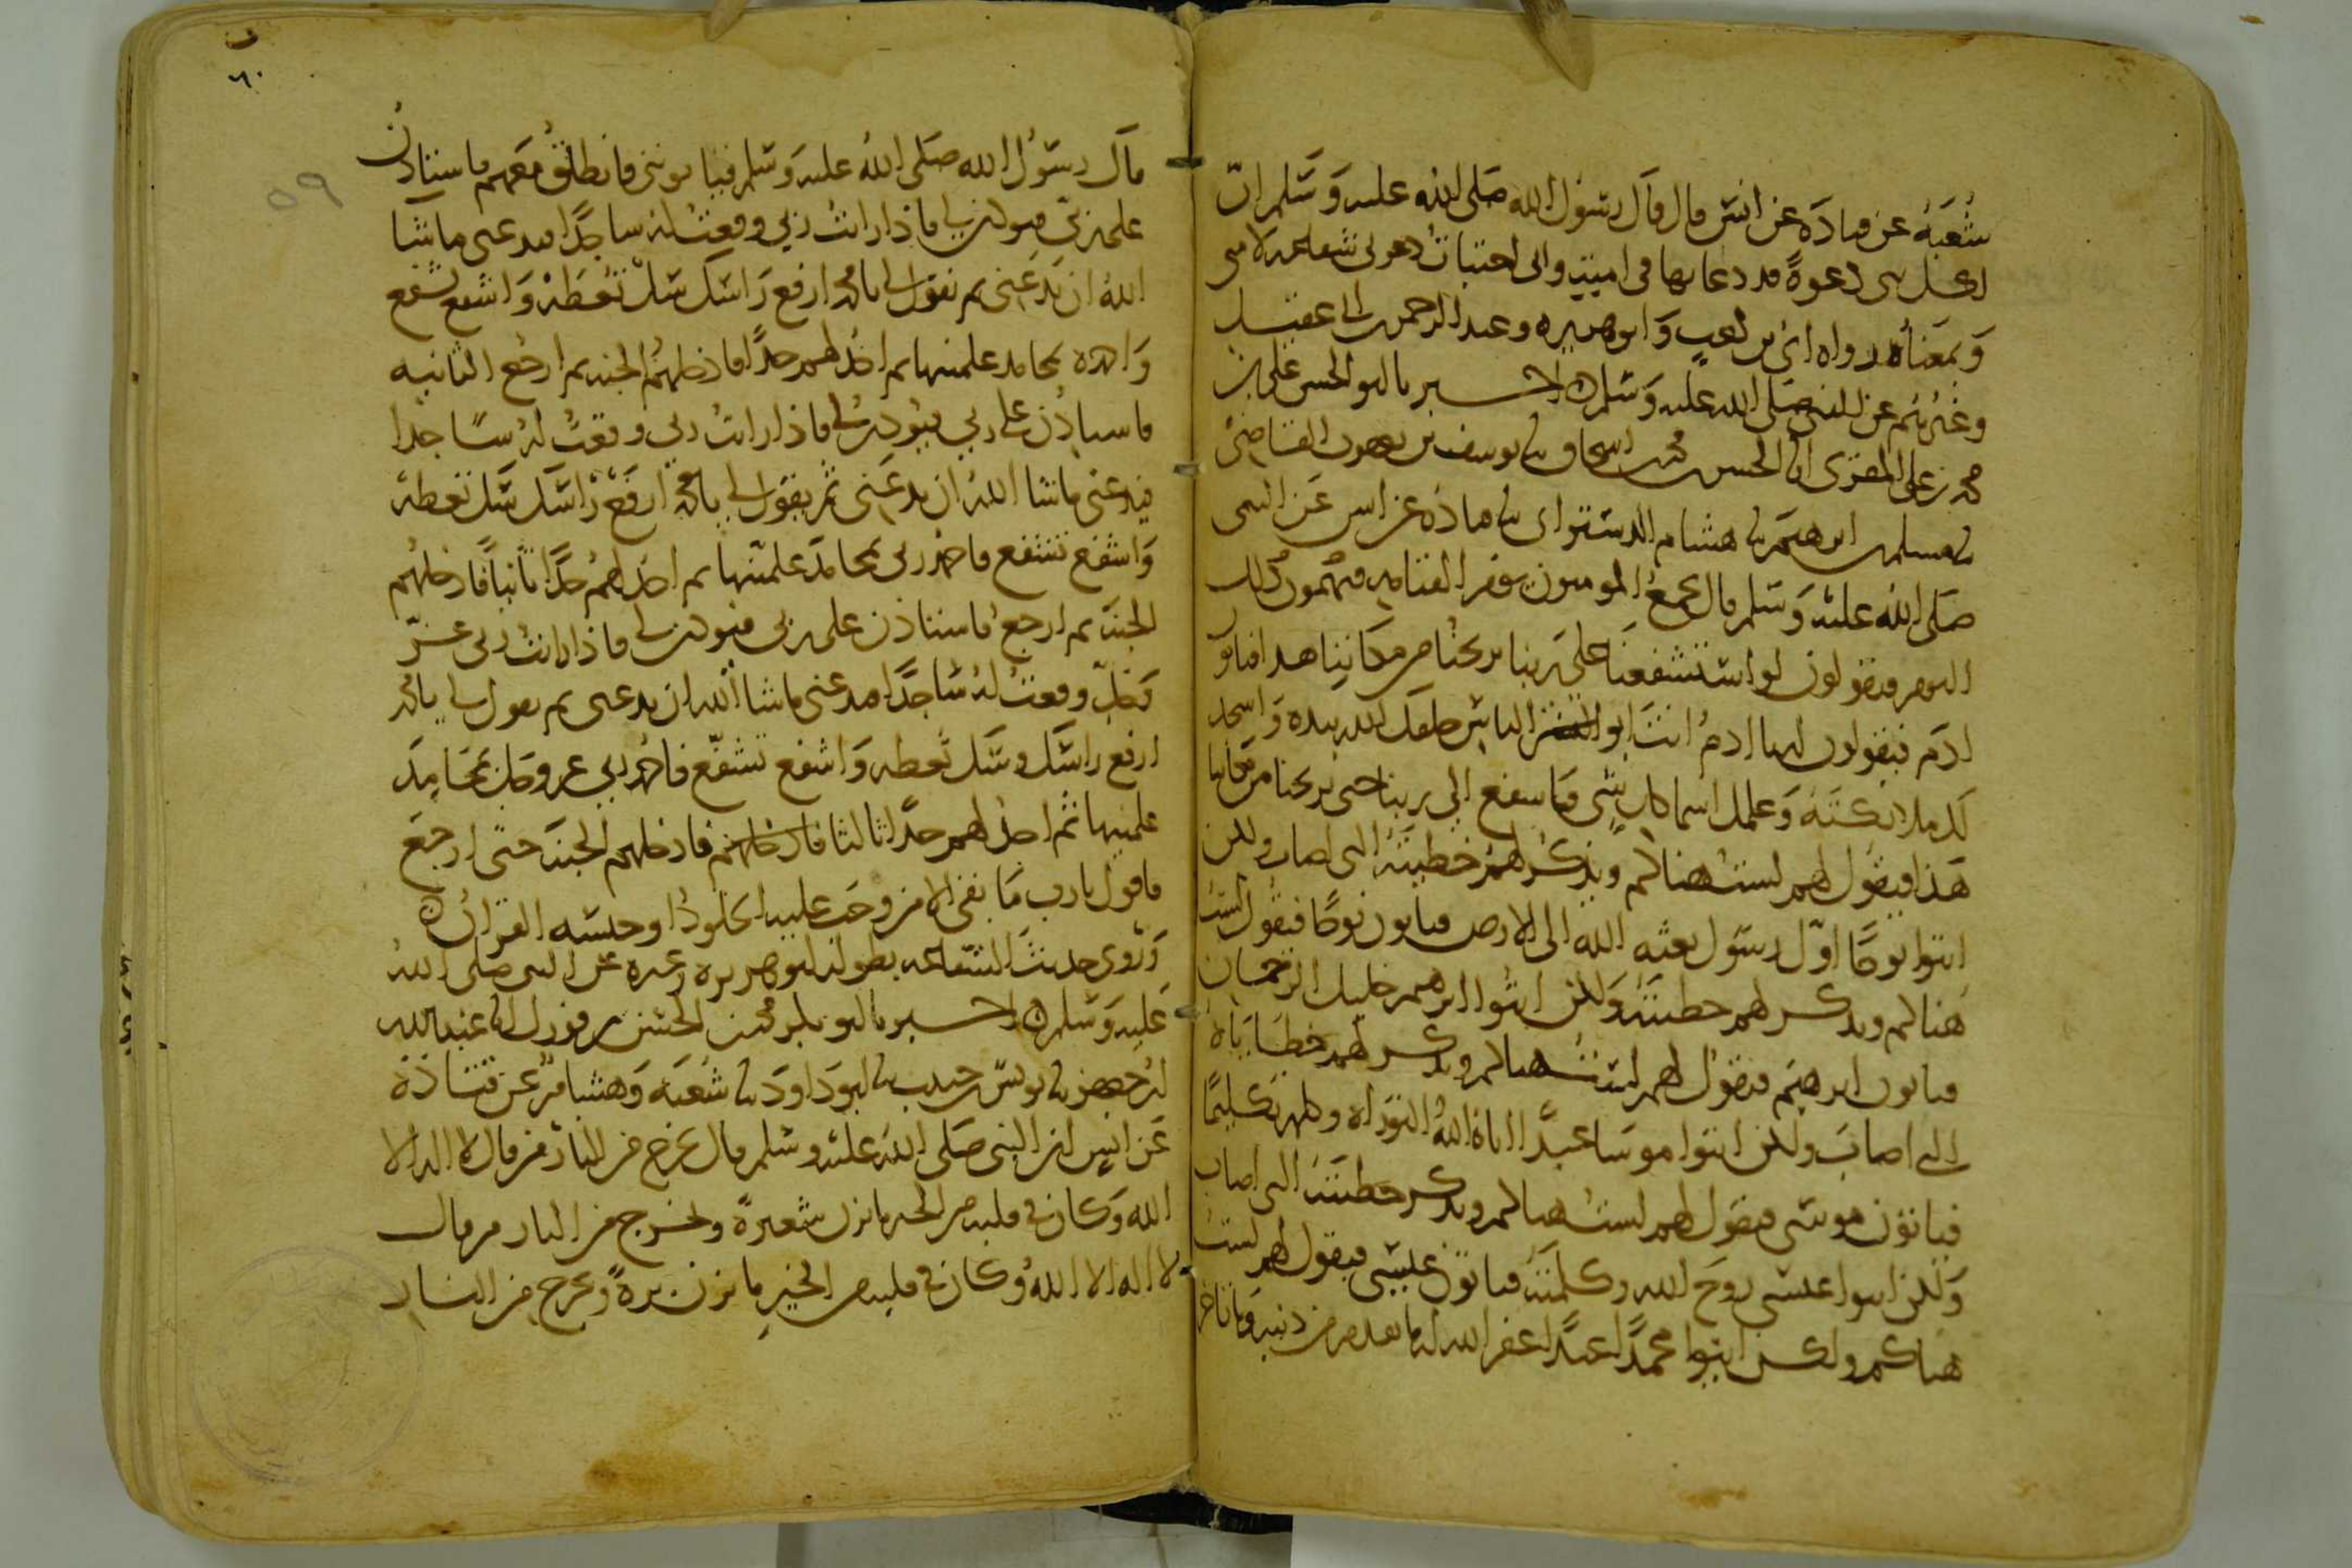 شعبة عن قتادة عن انس قال قال رسول الله صلى الله عليه وسلم ان
لكل نبي دعوة قد دعا بها في امته واني اختبات دعوتي شفاعة لامتي
وبمعناه رواه ابي بن كعب وابو هريره وعبد الرحمن بن ابي عقيل
وغيرهم عن النبي صلى الله عليه وسلم اخبرنا ابو الحسن علي بن
محمد بن علي المقرئ انا الحسن بن محمد بن اسحاق نا يوسف بن يعقوب القاضي
نا مسلم بن ابرهيم نا هشام الدستوائي نا قتادة عن انس عن النبي
صلى الله عليه وسلم قال يجمع المومنون يوم القيامة فيهتمون لذلك
اليوم فيقولون لو استشفعنا على ربنا يريحنا من مكاننا هذا فياتو
ادم فيقولون له يا ادم انت ابو البشر الناس خلقك الله بيده واسجد
لك ملائكته وعلمك اسما كل شي فاشفع الى ربنا حتى يريحنا من مكاننا
هذا فيقول لهم لست هناكم ويذكر لهم خطيئته التي اصاب ولكن
ائتوا نوحا اول رسول بعثه الله الى الارض فياتون نوحا فيقول لست
هناكم ويذكر لهم خطيئته ولكن ائتوا ابرهيم خليل الرحمان
فياتون ابرهيم فيقول لهم لست هناكم ويذكر لهم خطاياه
التي اصاب ولكن ائتوا موسا عبدا اتاه الله التوراه وكلمه تكليما
فياتون موسى فيقول لهم لست هناكم ويذكر خطيئته التي اصاب
ولكن ائتوا عيسى روح الله وكلمته فياتون عيسى فيقول لهم لست
هناكم ولكن ائتوا محمدا عبدا غفر الله له ما تقدم من ذنبه وما تاخر
٦٠
٥٩
قال رسول الله صلى الله عليه وسلم فياتونني فانطلق معهم فاستاذن
على ربي فيوذن لي فاذا رايت ربي وقعت له ساجدا فيدعني ما شا
الله ان يدعني ثم يقول لي يا محمد ارفع راسك سل تعطه واشفع تشفع
واحمده بمحامد علمنيها ثم احد لهم حدا فادخلهم الجنه ثم ارجع الثانيه
فاستاذن على ربي فيوذن لي فاذا رايت ربي وقعت له ساجدا
فيدعني ما شا الله ان يدعني ثم يقول لي يا محمد ارفع راسك سل تعطه
واشفع تشفع فاحمد ربي بمحامد علمنيها ثم احد لهم حدا ثانيا فادخلهم
الجنة ثم ارجع فاستاذن على ربي فيوذن لي فاذا رايت ربي عز
وجل وقعت له ساجدا فيدعني ما شا الله ان يدعني ثم يقول لي يا محمد
ارفع راسك وسل تعطه واشفع تشفع فاحمد ربي عز وجل بمحامد
علمنيها ثم احد لهم حدا ثالثا فادخلهم فادخلهم الجنة حتى ارجع
فاقول يا رب ما بقي الا من وجب عليه الخلود او حبسه القران
وروى حديث الشفاعه بطوله ابو هريره وغيره عن النبي صلى الله
عليه وسلم اخبرنا ابو بكر محمد بن الحسن بن فورك انا عبد الله
بن جعفر نا يونس بن حبيب نا ابو داود نا شعبه وهشام عن قتاذة
عن انس ان النبي صلى الله عليه وسلم قال يخرج من النار من قال لا اله الا
الله وكان في قلبه من الخير ما يزن شعيرة ويخرج من النار من قال
لا اله الا الله وكان في قلبه من الخير ما يزن برة ويخرج من النار